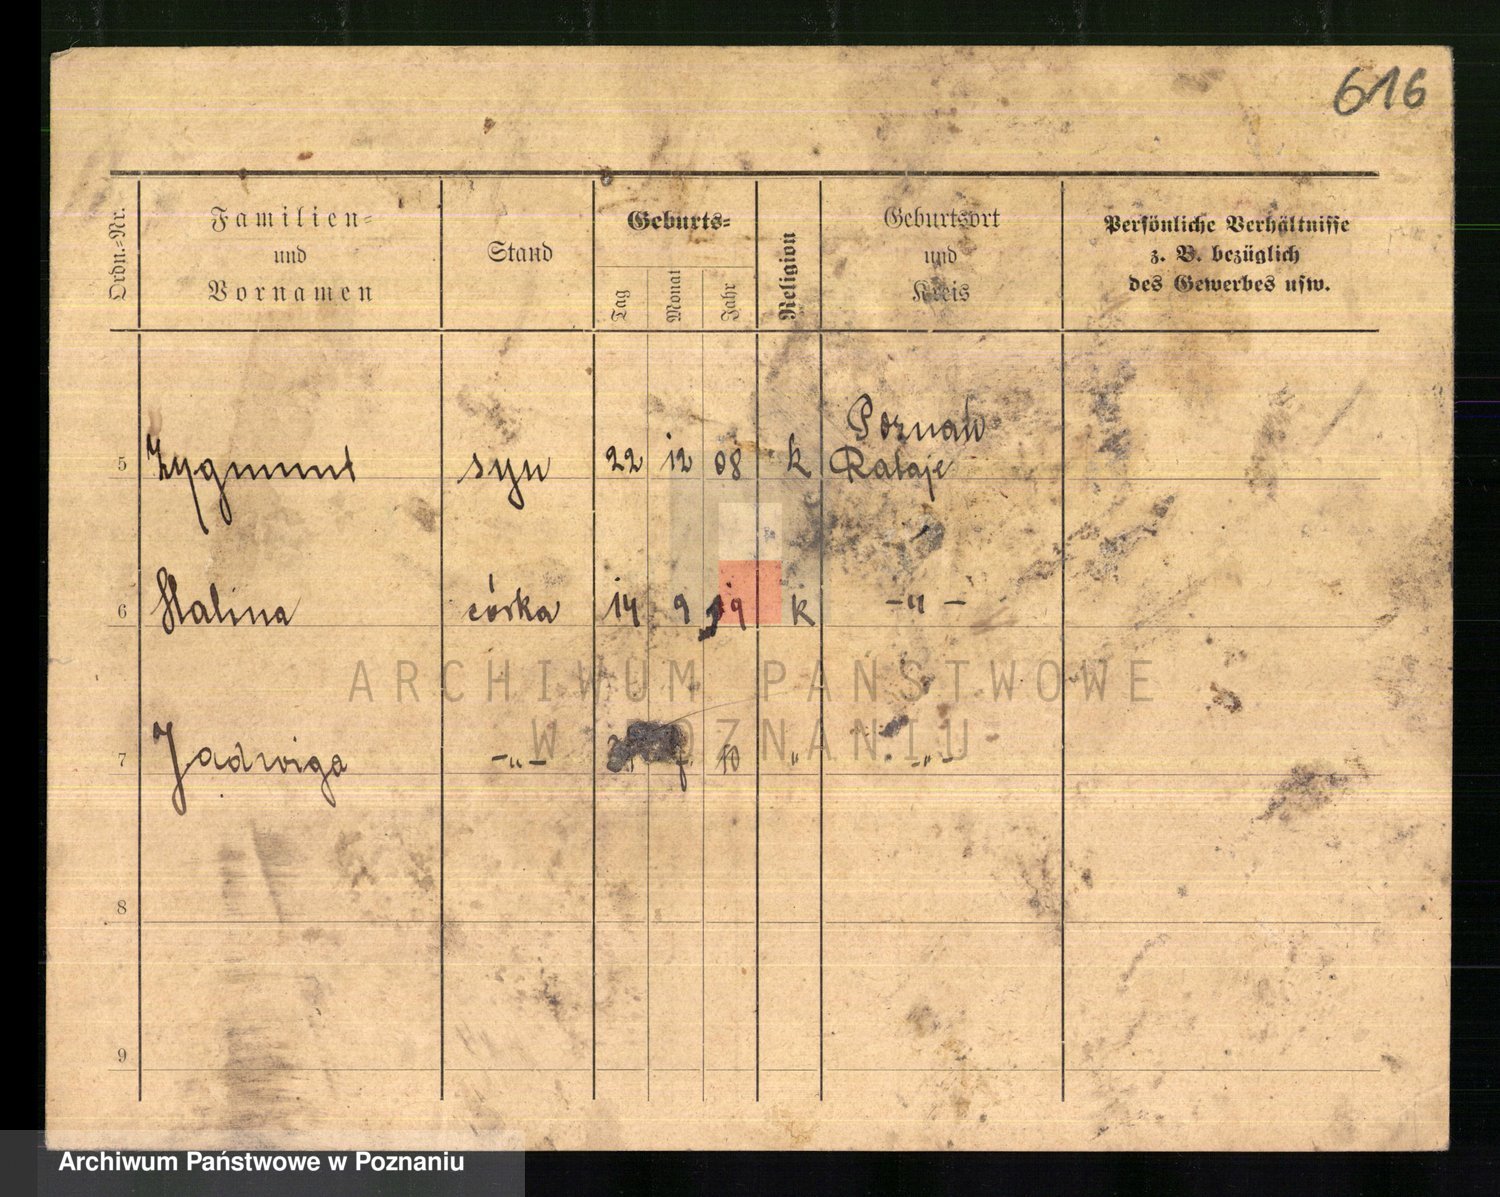 616
Ordn.-Nr.
Familien-
und
Vornamen
Stand
Geburts-
Tag
Monat
Jahr
Religion
Geburtsort
und
Kreis
Persönliche Verhältnisse
z. B. bezüglich
des Gewerbes usw.
Poznań
5 Zygmunt syn 22 12 08 k Rataje
6 Halina córka 14 9 k -"-
ARCHIWUM PAŃSTWOWE
W POZNANIU
7 Jadwiga -"- 10 " -"-
8
9
Archiwum Państwowe w Poznaniu